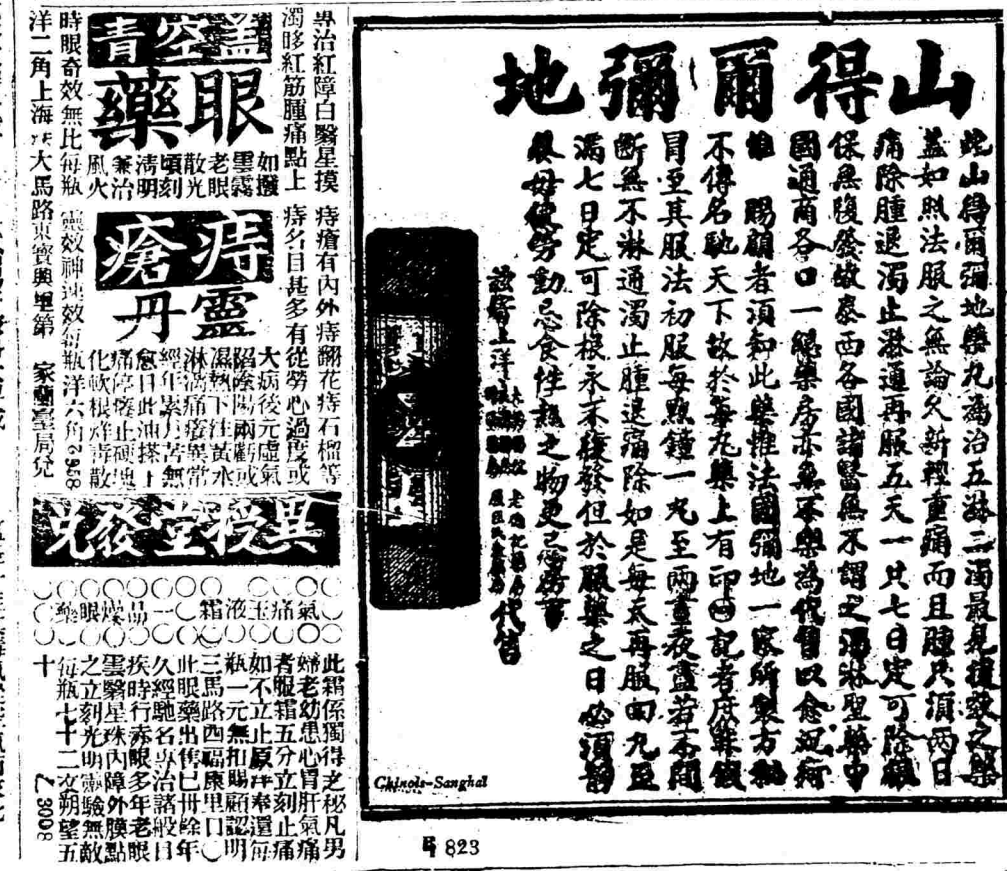 山得爾彌地
此山得爾彌地藥丸為治五淋二濁最見捷效之藥
蓋如照法服之無論久新輕重痛而且腫只須兩日
痛除腫退濁止淋通再服五天一共七日定可除根
保無復發故泰西各國諸醫無不謂之濁淋聖藥中
國通商各口一總藥房亦無不樂為代售以
惟 賜顧者須知此藥惟法國彌地一家所製方
不傳名馳天下故於每丸藥上有印記者庶無假
冒至其服法初服每點鐘一丸至兩晝夜盡若不間
斷無不淋通濁止腫退痛除如是每天再服四丸至
滿七日定可除根永不復發但於服藥之日必須靜
養毋使勞動忌食性熱之物更忌房事
寄上洋 代售
Chinois-Sanghai
823
專治紅障白翳星摸
濁眵紅筋腫痛點上
蓋空青
眼藥
如撥
雲霧
老眼
散光
頃刻
清明
兼治
風火
時眼奇效無比每瓶
洋二角上海大馬路東寶興里第 家蘭臺局兌
痔瘡有內外痔翻花痔石榴等
痔名目甚多有從勞心過度或
痔瘡
靈丹
大病後元虛氣
陷陰陽兩虧或
濕熱下注黃水
淋漓痛癢異常
經年累月苦無
愈日此油搽上
痛停癢止硬塊
化軟根痒毒散
靈效神速效每瓶洋六角
異授堂發兌
氣痛玉液霜
一品燥眼藥
此霜係獨得之秘凡男
婦老幼患心胃肝氣痛
者服霜五分立刻止痛
如不立止原洋奉還每
瓶一元無扣賜顧認明
三馬路西福康里口
此眼藥出售已卅餘年
久經馳名專治諸般目
疾時行赤眼多年老眼
雲翳星珠內障外膜點
之立刻光明靈驗無敵
每瓶七十二文朔望五
十
乙3008